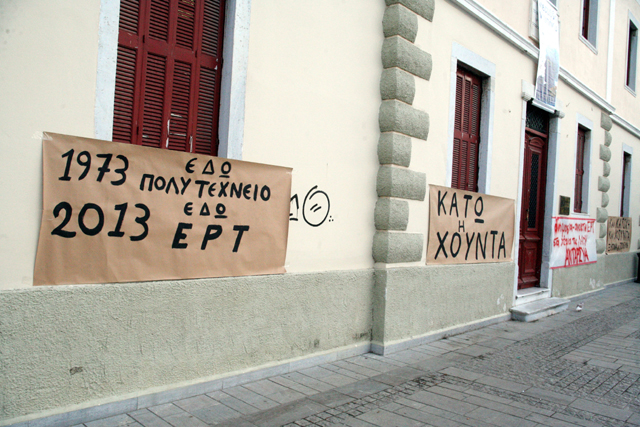 1973 ΕΔΩ
ΠΟΛΥΤΕΧΝΕΙΟ
2013 ΕΔΩ
ΕΡΤ
ΚΑΤΩ
Η
ΧΟΥΝΤΑ
ΑΝΤΑΡΣΥΑ